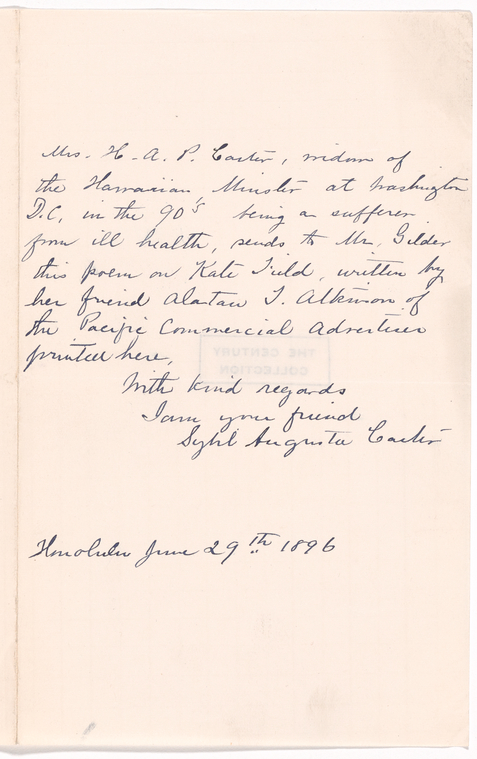 Mrs. H. A. P. Carter, widow of
the Hawaiian Minister at Washington
D.C, in the 90's being a sufferer
from ill health, sends to Mr. Gilder
this poem on Kate Field, written by
her friend Alatau T. Atkinson of
the Pacific Commercial Advertiser
printed here,
With kind regards
I am your friend
Sybil Augusta Carter
THE CENTURY
COLLECTION
Honolulu June 29th 1896